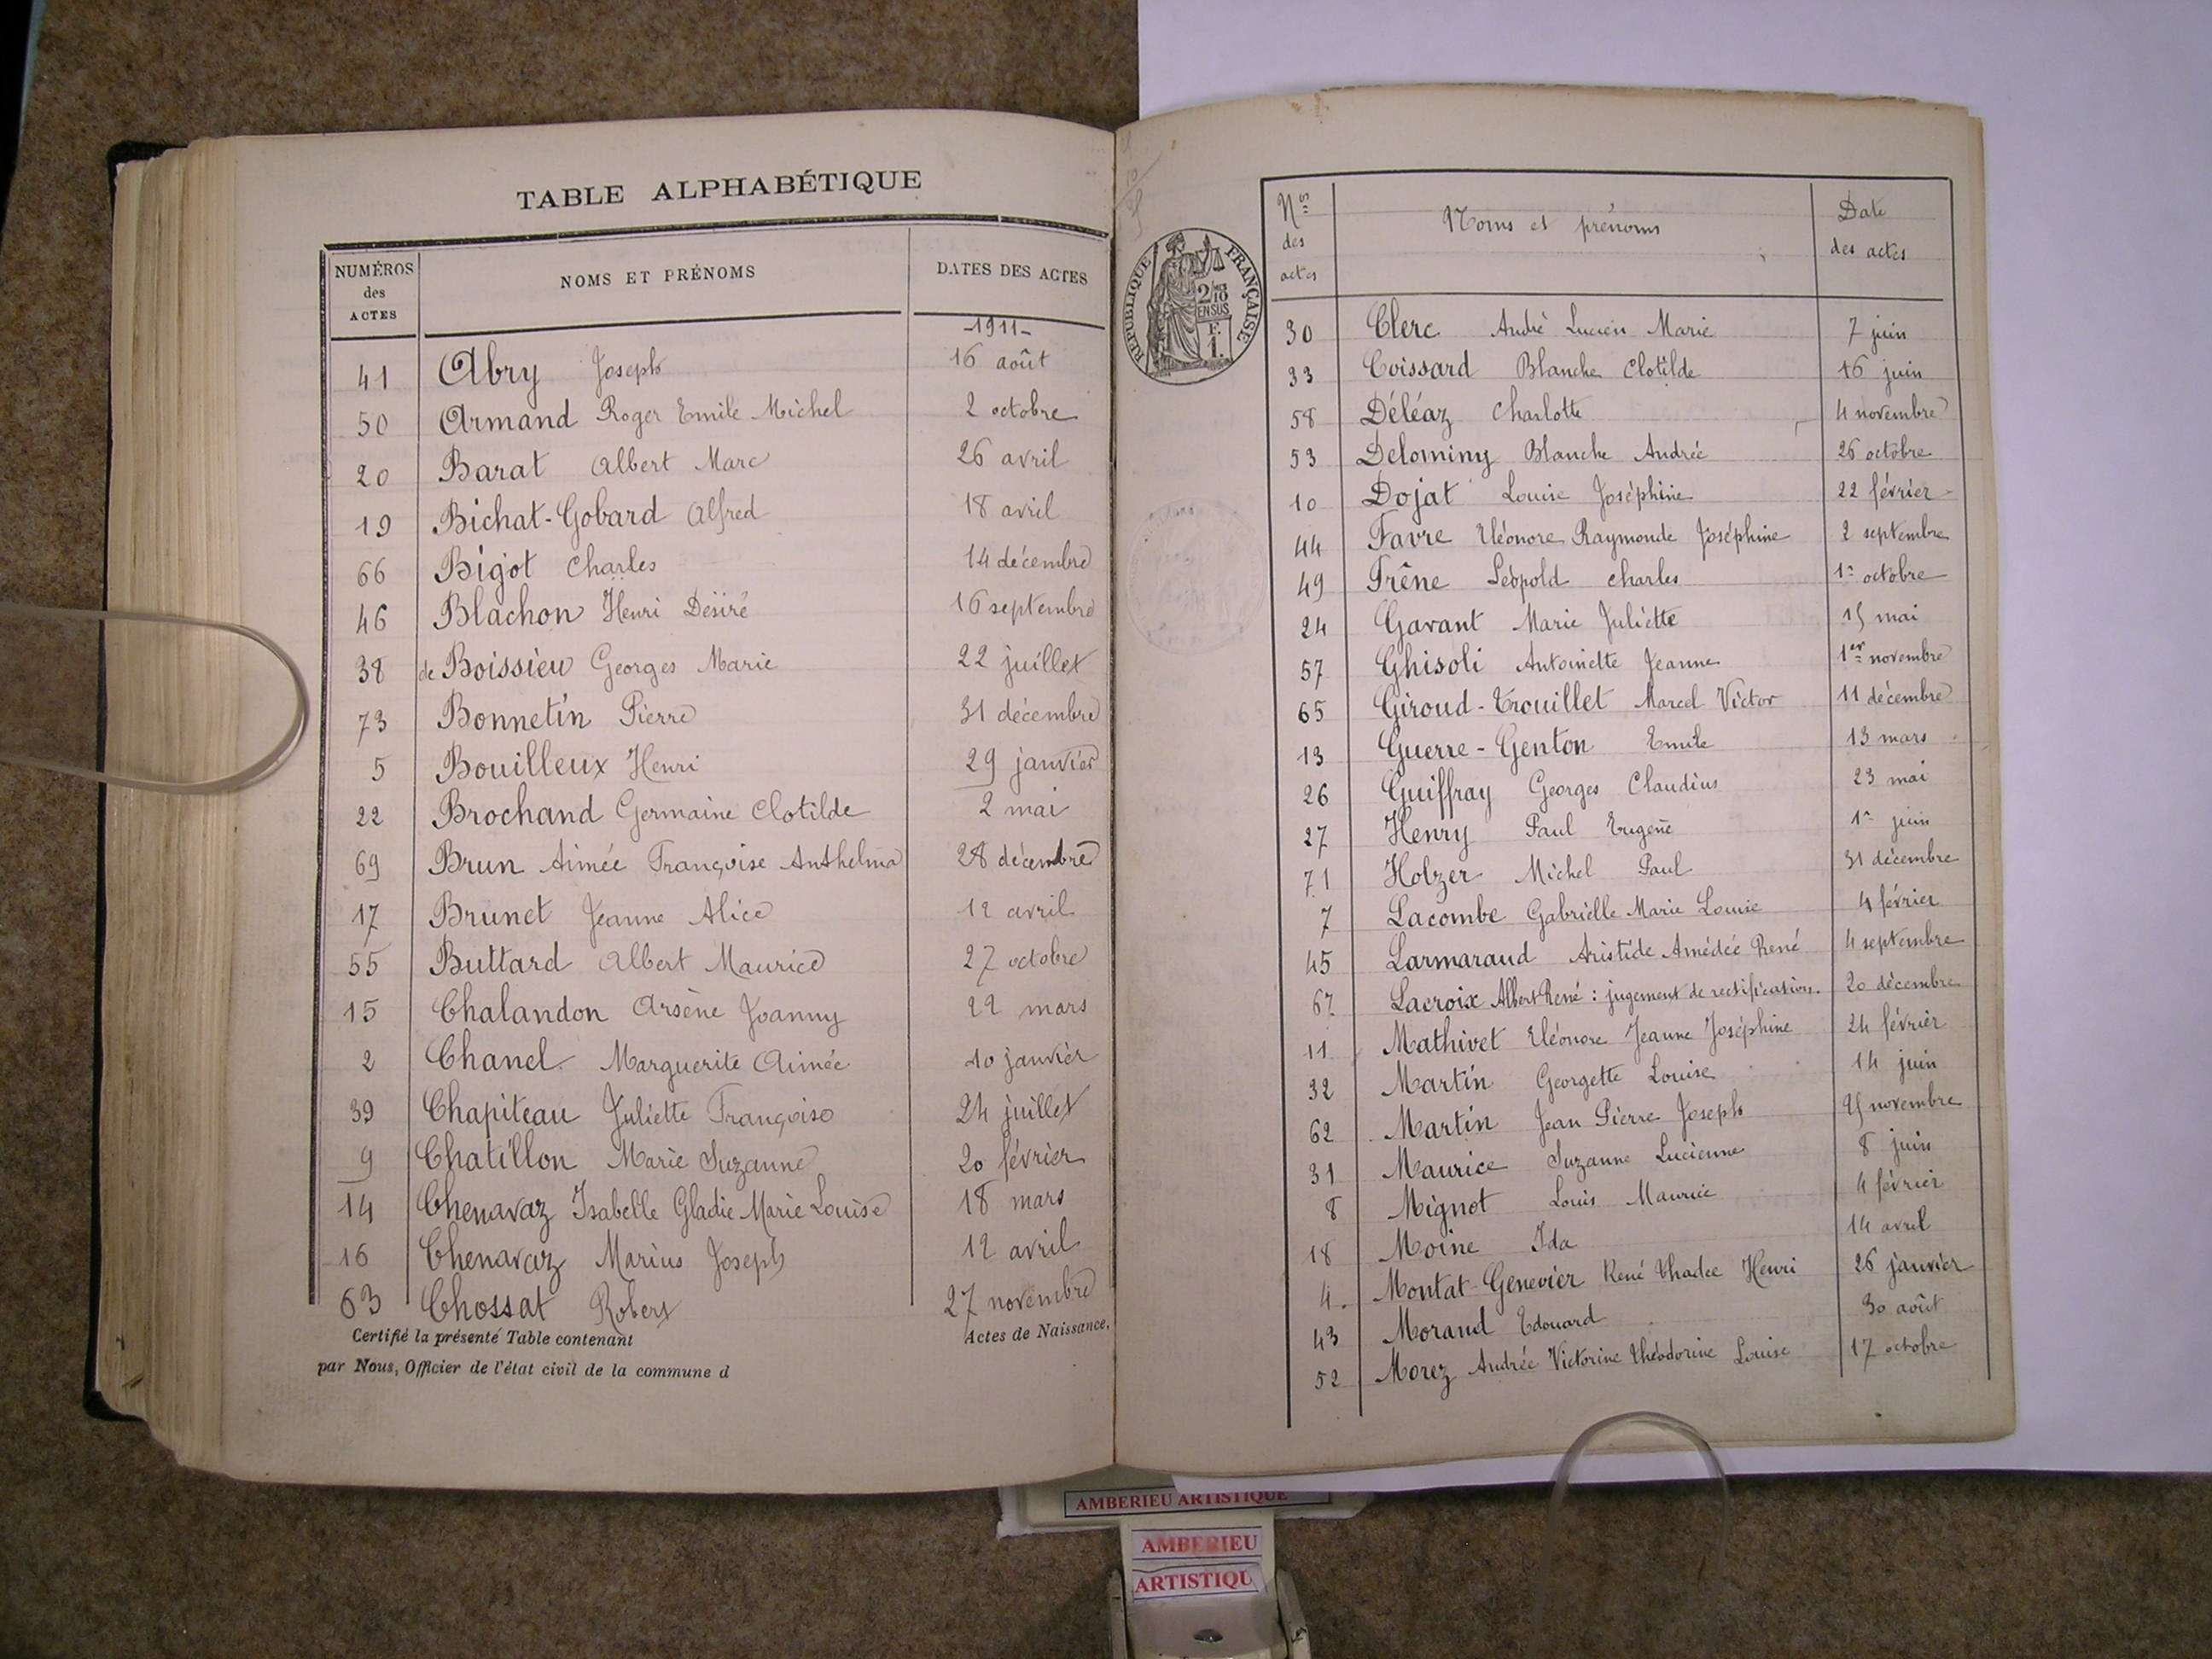 TABLE ALPHABÉTIQUE
NUMÉROS des ACTES NOMS ET PRÉNOMS DATES DES ACTES
-1911-
41 Abry Joseph 16 août
50 Armand Roger Emile Michel 2 octobre
20 Barat Albert Marc 26 avril
19 Bichat-Gobard Alfred 18 avril
66 Bigot Charles 14 décembre
46 Blachon Henri Désiré 16 septembre
38 de Boissieu Georges Marie 22 juillet
73 Bonnetin Pierre 31 décembre
5 Bouilleux Henri 29 janvier
22 Brochand Germaine Clotilde 2 mai
69 Brun Aimée Françoise Anthelma 28 décembre
17 Brunet Jeanne Alice 12 avril
55 Buttard Albert Maurice 27 octobre
15 Chalandon Arsène Joanny 22 mars
2 Chanel Marguerite Aimée 10 janvier
39 Chapiteau Juliette Françoise 24 juillet
9 Chatillon Marie Suzanne 20 février
14 Chenavaz Isabelle Gladie Marie Louise 18 mars
16 Chenavaz Marius Joseph 12 avril
63 Chossat Robert 27 novembre
Certifié la présente Table contenant Actes de Naissance,
par Nous, Officier de l'état civil de la commune d
RÉPUBLIQUE FRANÇAISE
2/10
EN SUS
F.
1.
Nos des actes Noms et prénoms Date des actes
30 Clerc André Lucien Marie 7 juin
33 Coissard Blanche Clotilde 16 juin
58 Déléaz Charlotte 4 novembre
53 Delominy Blanche Andrée 26 octobre
10 Dojat Louise Joséphine 22 février
44 Favre Eléonore Raymonde Joséphine 2 septembre
49 Frêne Léopold Charles 1er octobre
24 Gavant Marie Juliette 15 mai
57 Ghisoli Antoinette Jeanne 1er novembre
65 Giroud-Trouillet Marcel Victor 11 décembre
13 Guerre-Genton Emile 13 mars
26 Guiffray Georges Claudius 23 mai
27 Henry Paul Eugène 1er juin
71 Holzer Michel Paul 31 décembre
7 Lacombe Gabrielle Marie Louise 4 février
45 Larmaraud Aristide Amédée René 4 septembre
67 Lacroix Albert René : jugement de rectification. 20 décembre
11 Mathivet Eléonore Jeanne Joséphine 24 février
32 Martin Georgette Louise 14 juin
62 Martin Jean Pierre Joseph 25 novembre
31 Maurice Suzanne Lucienne 8 juin
8 Mignot Louis Maurice 4 février
18 Moine Ida 14 avril
4. Montat-Genevier René Thadée Henri 26 janvier
43 Morand Edouard 30 août
52 Morez Andrée Victorine Théodorine Louise 17 octobre
AMBERIEU ARTISTIQUE
AMBERIEU
ARTISTIQU